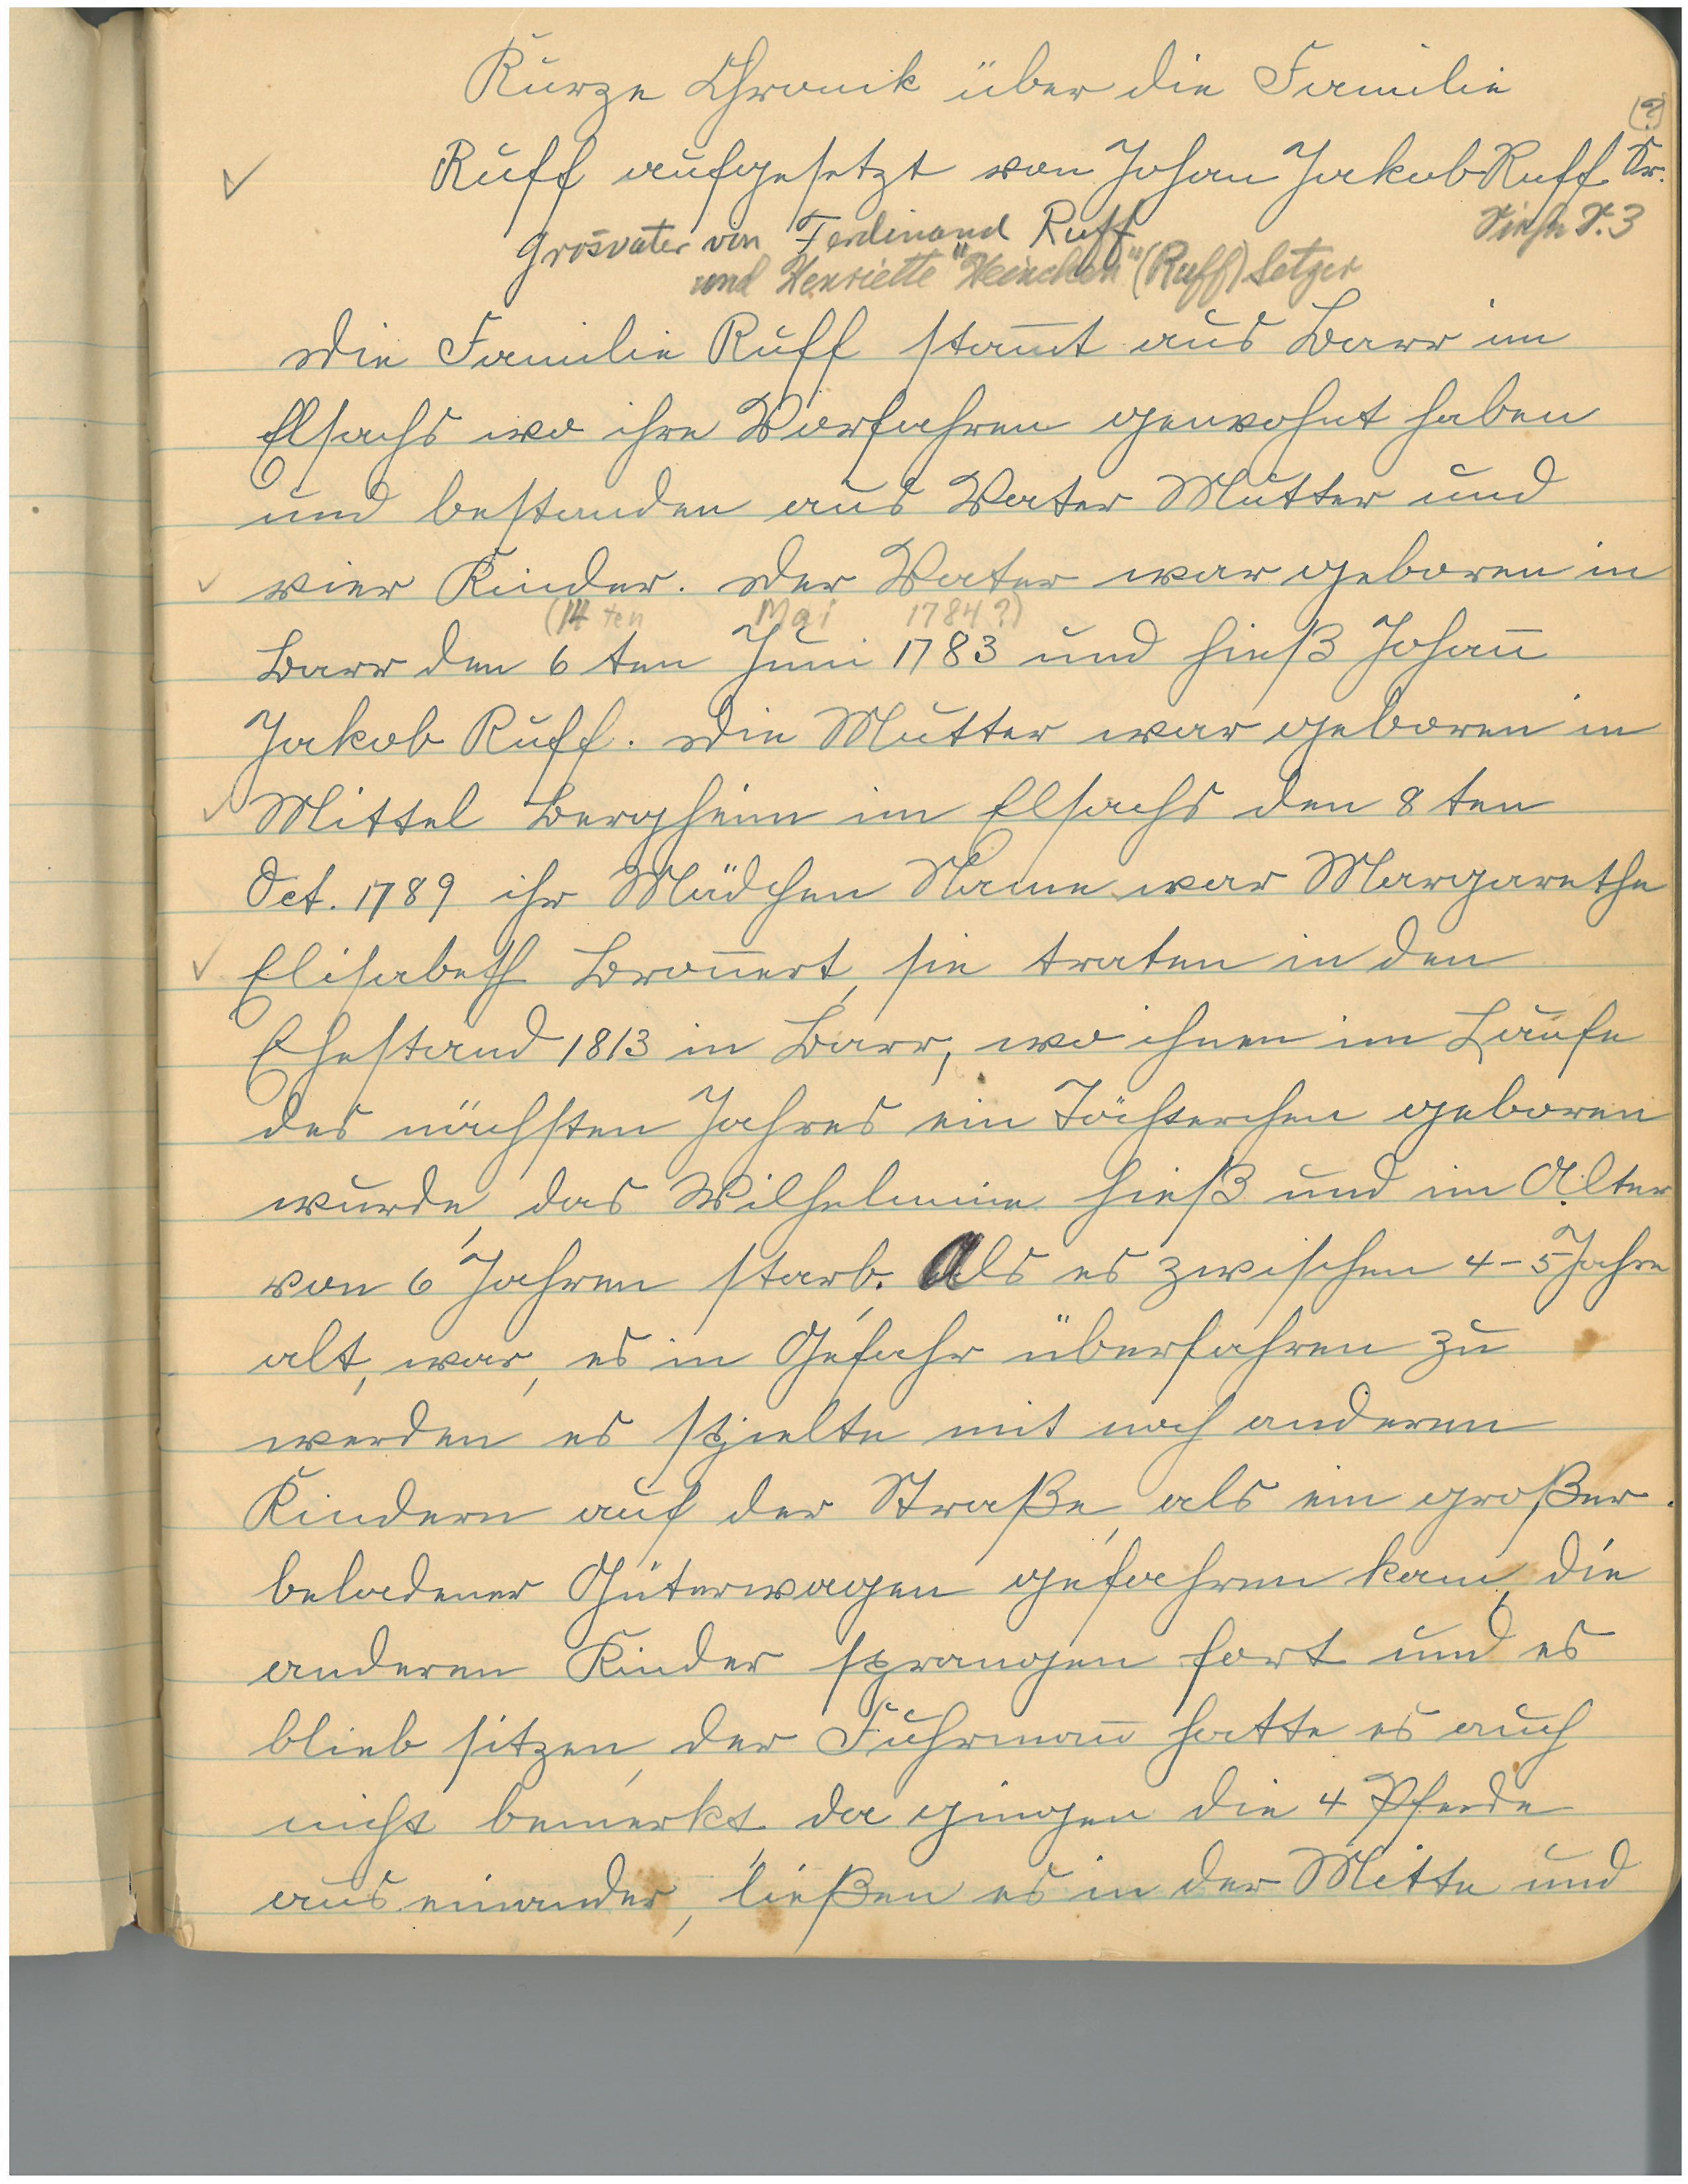 Kurze Chronik über die Familie
(?)
Ruff aufgesetzt von Johan Jakob Ruff Sr.
Grosvater von Ferdinand Ruff
Siehe S. 3
und Henriette "Heinchen" (Ruff) Setzer
Die Familie Ruff stam̅t aus Barr im
Elsachs wo ihre Vorfahren gewohnt haben
und bestanden aus Vater Mutter und
vier Kinder. Der Vater war geboren in
(14 ten Mai 1784?)
Barr den 6 ten Juni 1783 und hieß Johan̅
Jakob Ruff. Die Mutter war geboren in
Mittel Bergheim im Elsachs den 8 ten
Oct. 1789 ihr Mädchen Name war Margarethe
Elisabeth Bron̅ert, sie traten in den
Ehestand 1813 in Barr, wo ihnen im Laufe
des nächsten Jahres ein Töchterchen geboren
wurde, das Wilhelmine hieß und im Alter
von 6 Jahren starb. Als es zwischen 4-5 Jahre
alt, war, es in Gefahr überfahren zu
werden es spielte mit noch anderen
Kindern auf der Straße, als ein großer
beladener Güterwagen gefahren kam, die
anderen Kinder sprangen fort und es
blieb sitzen, der Fuhrman̅ hatte es auch
nicht bemerkt, da gingen die 4 Pferde
aus einander, ließen es in der Mitte und